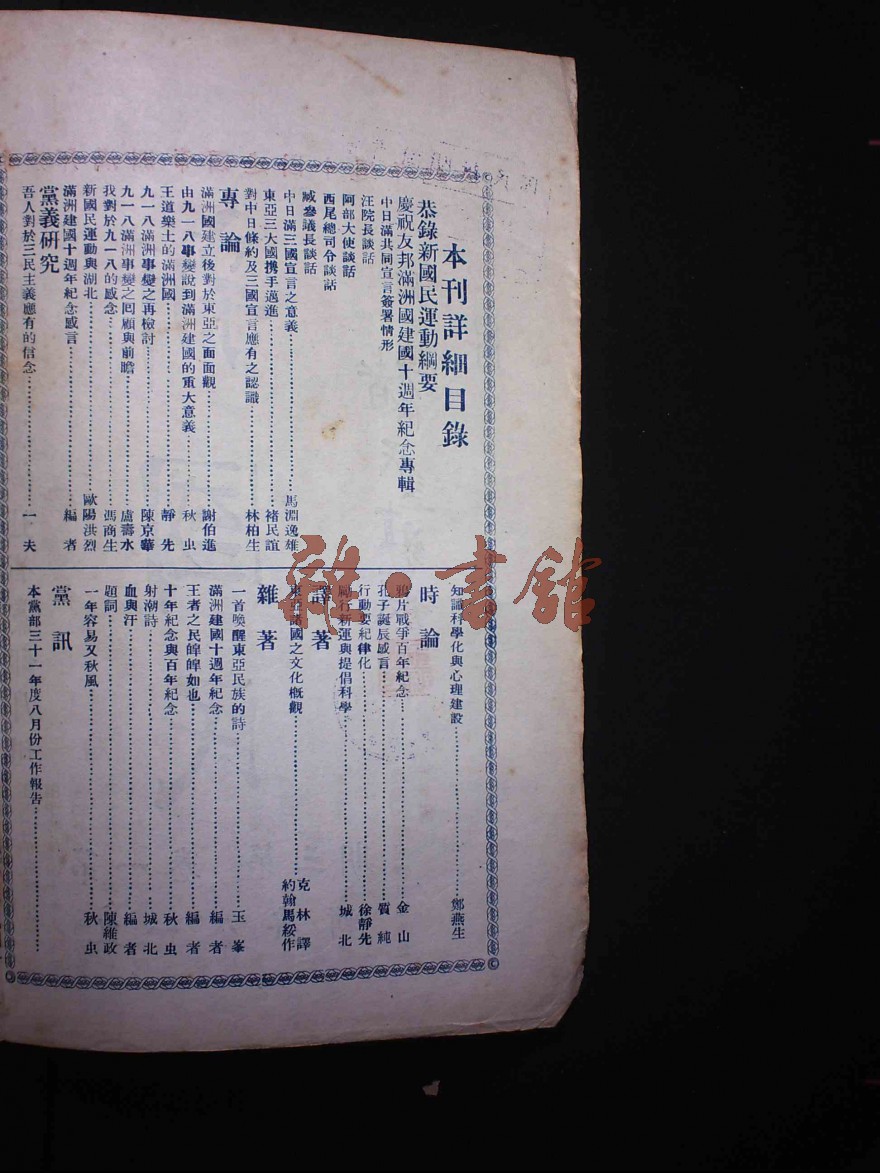 本刊詳細目錄
恭錄新國民運動綱要
慶祝友邦滿洲國建國十週年紀念專輯
中日滿共同宣言簽署情形
汪院長談話
阿部大使談話
西尾總司令談話
臧參議長談話
中日滿三國宣言之意義……馬淵逸雄
東亞三大國携手邁進……褚民誼
對中日條約及三國宣言應有之認識……林柏生
專論
滿洲國建立後對於東亞之面面觀……謝伯進
由九一八事變說到滿洲建國的重大意義……秋虫
王道樂土的滿洲國……靜先
九一八滿洲事變之再檢討……陳京華
九一八滿洲事變之回顧與前瞻……盧壽水
我對於九一八的感念……馮商生
新國民運動與湖北……歐陽洪烈
滿洲建國十週年紀念感言……編者
黨義研究
吾人對於三民主義應有的信念……一夫
時論
知識科學化與心理建設……鄭燕生
鴉片戰爭百年紀念……金山
孔子誕辰感言……質純
行動要紀律化……徐靜先
勵行新運與提倡科學……城北
譯著
東亞諸國之文化概觀……克林譯 約翰馬綏作
雜著
一首喚醒東亞民族的詩……玉峯
滿洲建國十週年紀念……編者
王者之民皞皞如也……編者
十年紀念與百年紀念……秋虫
射潮詩……城北
血與汗……編者
題詞……陳維政
一年容易又秋風……秋虫
黨訊
本黨部三十一年度八月份工作報告……
雜·書館